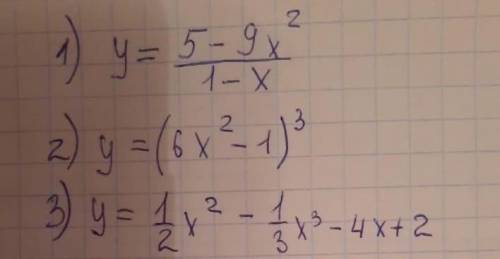 1) y = (5 - 9x²)/(1 - x)
2) y = (6x² - 1)³
3) y = 1/2 x² - 1/3 x³ - 4x + 2